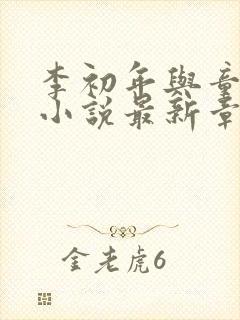 李初年與童
小說最新章
金老虎6